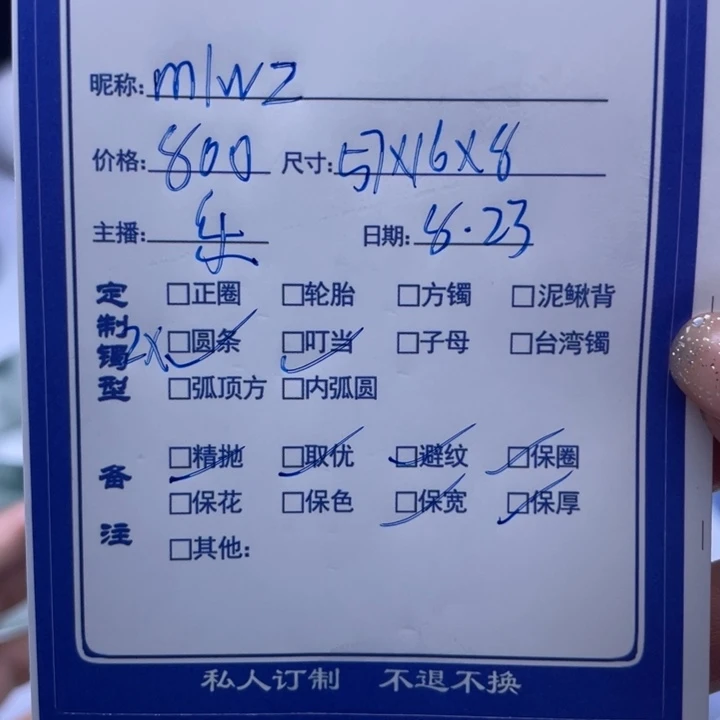 昵称: m1wz
价格: 800 尺寸: 57X16X8
主播: 乐 日期: 8.23
定制镯型
□正圈 □轮胎 □方镯 □泥鳅背
2X □圆条 □叮当 □子母 □台湾镯
□弧顶方 □内弧圆
备注
□精抛 □取优 □避纹 □保圈
□保花 □保色 □保宽 □保厚
□其他:
私人订制 不退不换